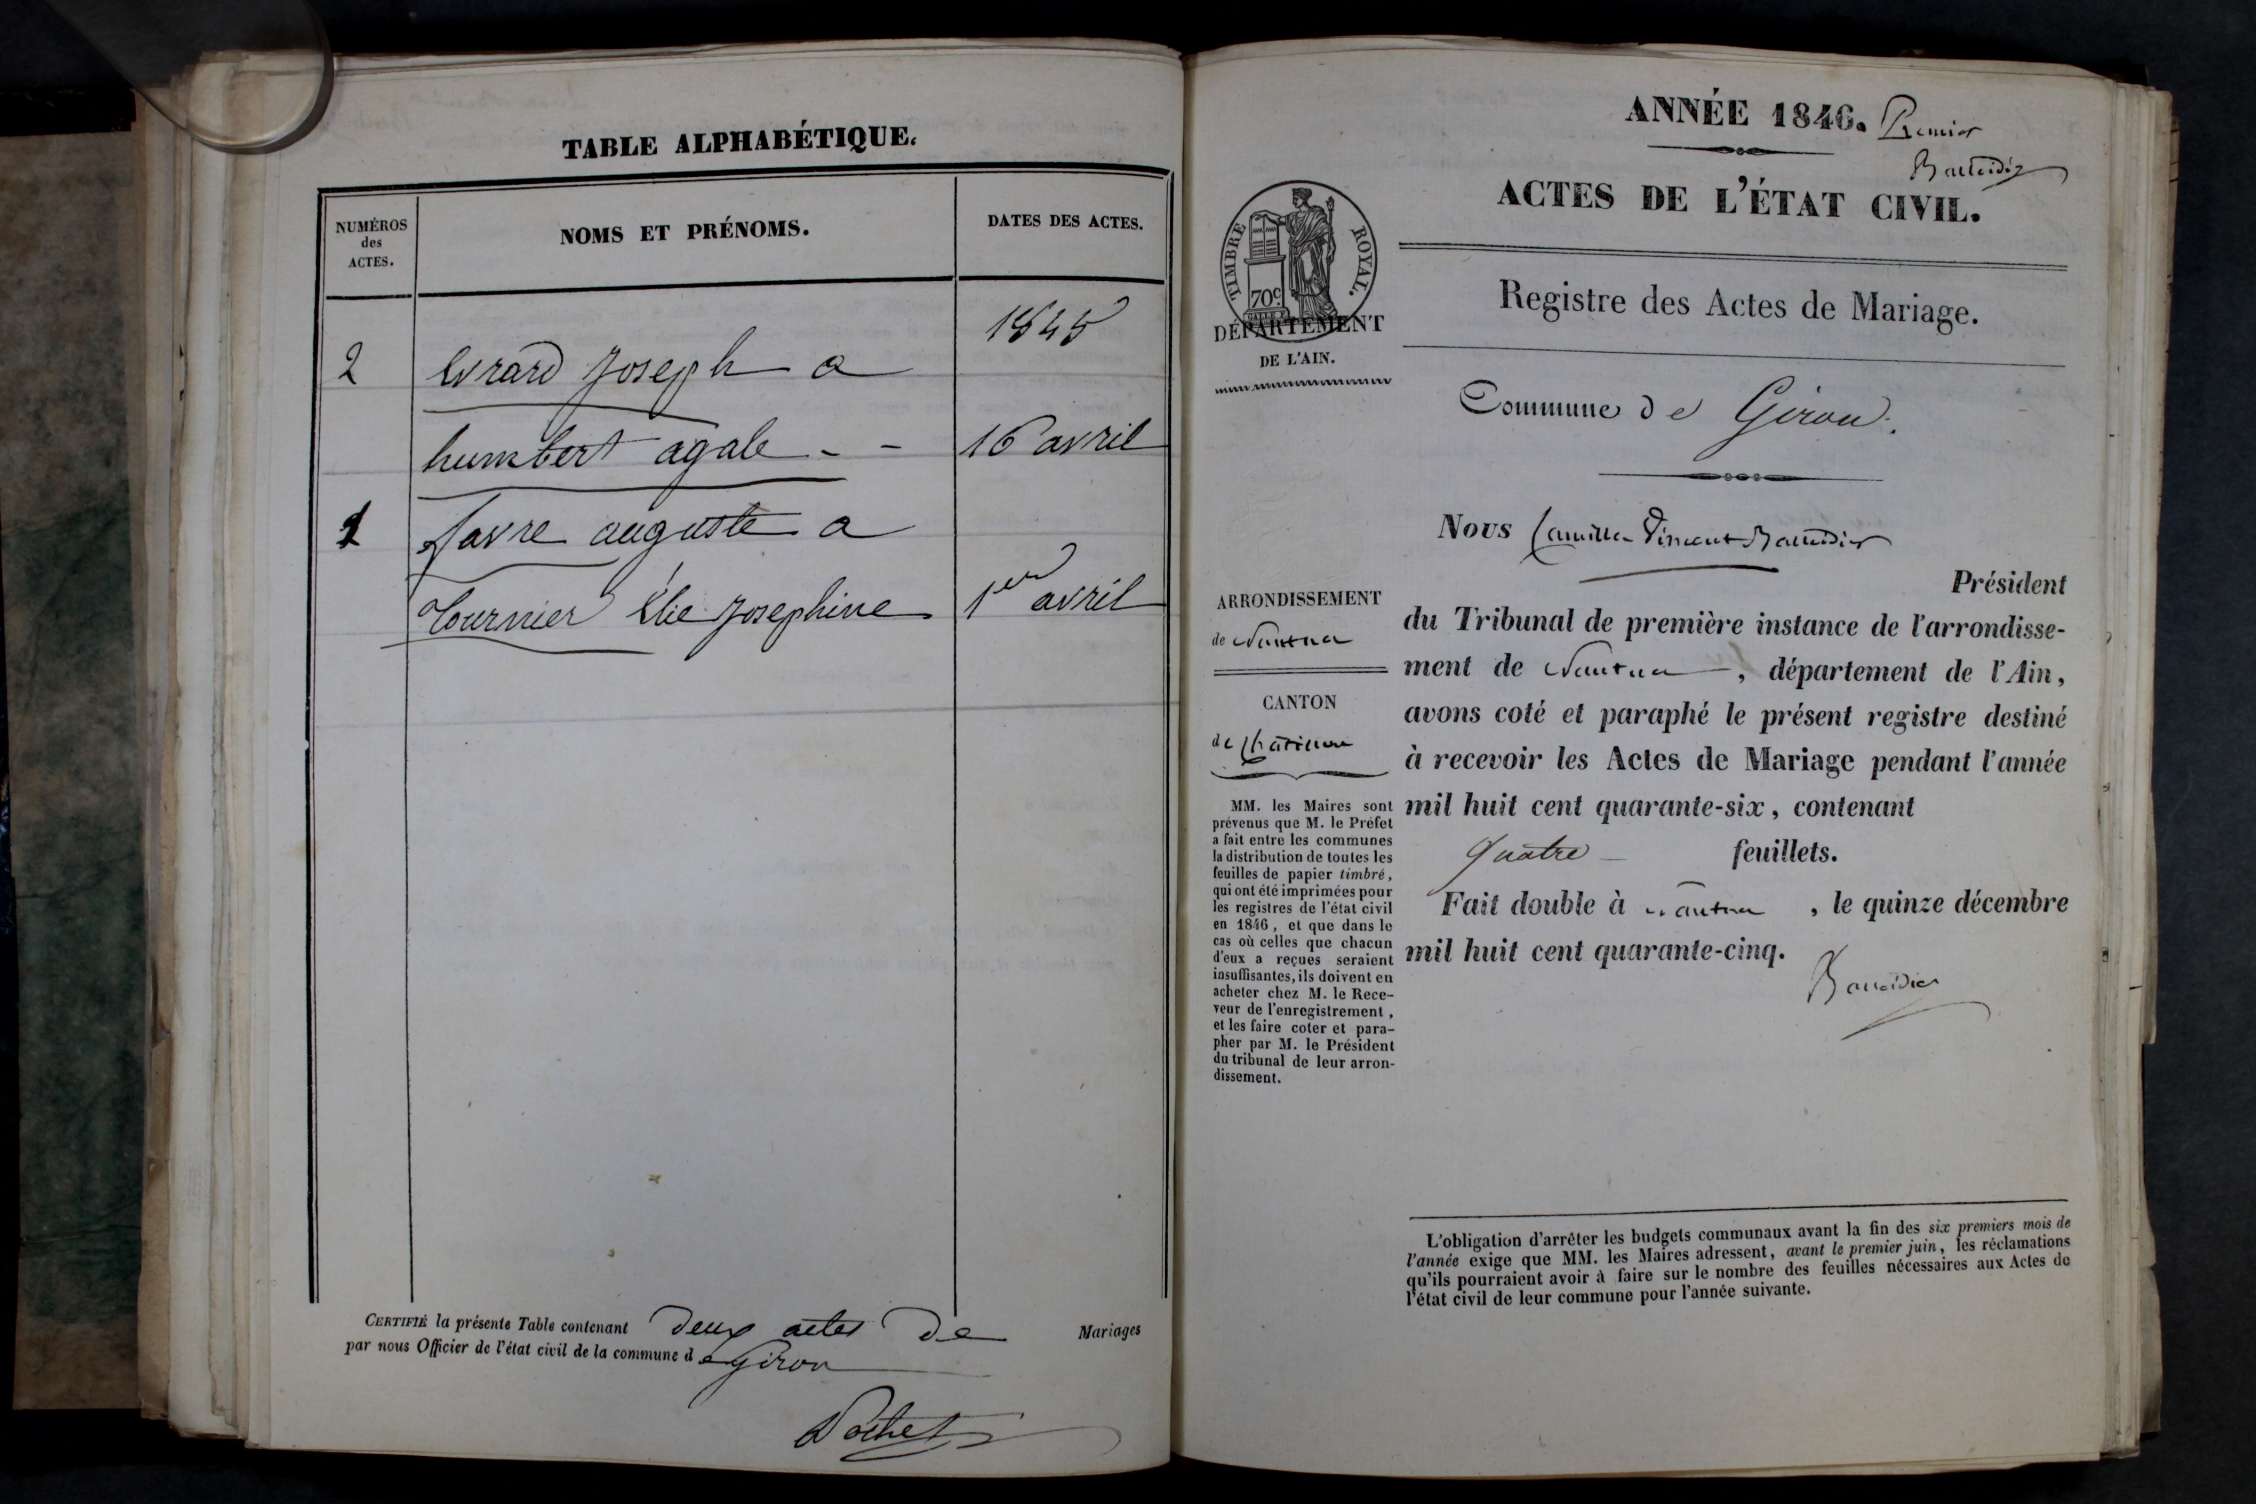 TABLE ALPHABÉTIQUE.
NUMÉROS
des
ACTES.
NOMS ET PRÉNOMS.
DATES DES ACTES.
1845
2 Evrard Joseph a
humbert agale - - 16 avril
1 favre auguste a
tournier Élie Josephine 1er avril
CERTIFIÉ la présente Table contenant deux actes de Mariages
par nous Officier de l'état civil de la commune de Giron
ANNÉE 1846. Premier
ACTES DE L'ÉTAT CIVIL.
Registre des Actes de Mariage.
TIMBRE ROYAL.
70c
DÉPARTEMENT
DE L'AIN.
Commune de Giron.
Nous Camille Vincent
Président
du Tribunal de première instance de l'arrondisse-
ment de Nantua, département de l'Ain,
avons coté et paraphé le présent registre destiné
à recevoir les Actes de Mariage pendant l'année
mil huit cent quarante-six, contenant
quatre feuillets.
Fait double à Nantua, le quinze décembre
mil huit cent quarante-cinq.
ARRONDISSEMENT
de Nantua
CANTON
de Chatillon
MM. les Maires sont
prévenus que M. le Préfet
a fait entre les communes
la distribution de toutes les
feuilles de papier timbré,
qui ont été imprimées pour
les registres de l'état civil
en 1846, et que dans le
cas où celles que chacun
d'eux a reçues seraient
insuffisantes, ils doivent en
acheter chez M. le Rece-
veur de l'enregistrement,
et les faire coter et para-
pher par M. le Président
du tribunal de leur arron-
dissement.
L'obligation d'arrêter les budgets communaux avant la fin des six premiers mois de
l'année exige que MM. les Maires adressent, avant le premier juin, les réclamations
qu'ils pourraient avoir à faire sur le nombre des feuilles nécessaires aux Actes de
l'état civil de leur commune pour l'année suivante.